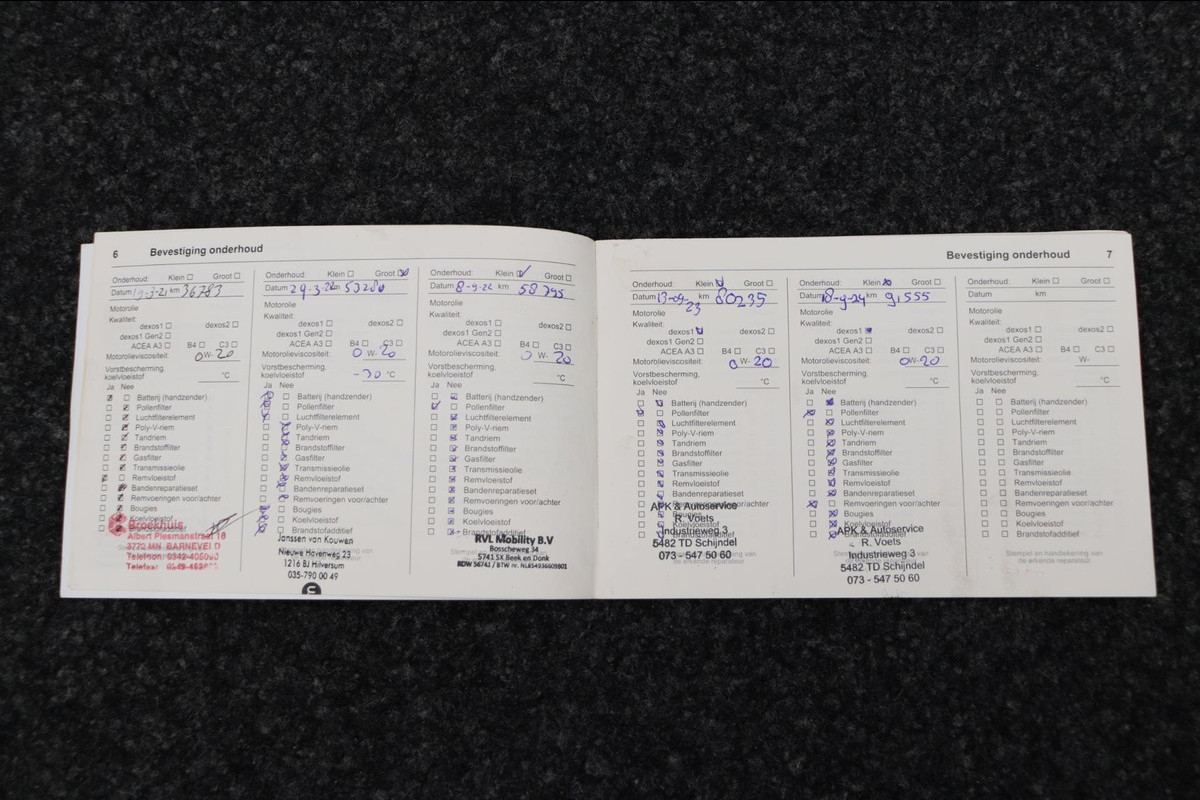 6 Bevestiging onderhoud
Onderhoud: Klein Groot
Datum km 36783
Motorolie
Kwaliteit:
dexos1 dexos2
dexos1 Gen2
ACEA A3 B4 C3
Motorolieviscositeit: 0W-20
Vorstbescherming,
koelvloeistof °C
Ja Nee
Batterij (handzender)
Pollenfilter
Luchtfilterelement
Poly-V-riem
Tandriem
Brandstoffilter
Gasfilter
Transmissieolie
Remvloeistof
Bandenreparatieset
Remvoeringen voor/achter
Bougies
Koelvloeistof
Broekhuis
Albert Plesmanstraat 18
3772 MN BARNEVELD
Onderhoud: Klein Groot
Datum 29-3-22 km 53280
Motorolie
Kwaliteit:
dexos1 dexos2
dexos1 Gen2
ACEA A3 B4 C3
Motorolieviscositeit: 0 W-20
Vorstbescherming,
koelvloeistof -30 °C
Ja Nee
Batterij (handzender)
Pollenfilter
Luchtfilterelement
Poly-V-riem
Tandriem
Brandstoffilter
Gasfilter
Transmissieolie
Remvloeistof
Bandenreparatieset
Remvoeringen voor/achter
Bougies
Koelvloeistof
Brandstofadditief
Janssen van Kouwen
Nieuwe Havenweg 23
1216 BJ Hilversum
035-790 00 49
Onderhoud: Klein Groot
Datum 8-9-22 km 58795
Motorolie
Kwaliteit:
dexos1 dexos2
dexos1 Gen2
ACEA A3 B4 C3
Motorolieviscositeit: 0 W-20
Vorstbescherming,
koelvloeistof °C
Ja Nee
Batterij (handzender)
Pollenfilter
Luchtfilterelement
Poly-V-riem
Tandriem
Brandstoffilter
Gasfilter
Transmissieolie
Remvloeistof
Bandenreparatieset
Remvoeringen voor/achter
Bougies
Koelvloeistof
Brandstofadditief
RVL Mobility B.V
Bosscheweg 34
5741 SX Beek en Donk
RDW 56741 / BTW nr. NL854936609B01
Bevestiging onderhoud 7
Onderhoud: Klein Groot
Datum 13-09-23 km 80235
Motorolie
Kwaliteit:
dexos1 dexos2
dexos1 Gen2
ACEA A3 B4 C3
Motorolieviscositeit: 0W-20
Vorstbescherming,
koelvloeistof °C
Ja Nee
Batterij (handzender)
Pollenfilter
Luchtfilterelement
Poly-V-riem
Tandriem
Brandstoffilter
Gasfilter
Transmissieolie
Remvloeistof
Bandenreparatieset
Remvoeringen voor/achter
Bougies
Koelvloeistof
Brandstofadditief
APK & Autoservice
R. Voets
Industrieweg 3
5482 TD Schijndel
073 - 547 50 60
Onderhoud: Klein Groot
Datum 18-9-24 km 91555
Motorolie
Kwaliteit:
dexos1 dexos2
dexos1 Gen2
ACEA A3 B4 C3
Motorolieviscositeit: 0W-20
Vorstbescherming,
koelvloeistof °C
Ja Nee
Batterij (handzender)
Pollenfilter
Luchtfilterelement
Poly-V-riem
Tandriem
Brandstoffilter
Gasfilter
Transmissieolie
Remvloeistof
Bandenreparatieset
Remvoeringen voor/achter
Bougies
Koelvloeistof
Brandstofadditief
APK & Autoservice
R. Voets
Industrieweg 3
5482 TD Schijndel
073 - 547 50 60
Onderhoud: Klein Groot
Datum km
Motorolie
Kwaliteit:
dexos1 dexos2
dexos1 Gen2
ACEA A3 B4 C3
Motorolieviscositeit: W-
Vorstbescherming,
koelvloeistof °C
Ja Nee
Batterij (handzender)
Pollenfilter
Luchtfilterelement
Poly-V-riem
Tandriem
Brandstoffilter
Gasfilter
Transmissieolie
Remvloeistof
Bandenreparatieset
Remvoeringen voor/achter
Bougies
Koelvloeistof
Brandstofadditief
Stempel en handtekening van
de erkende reparateur